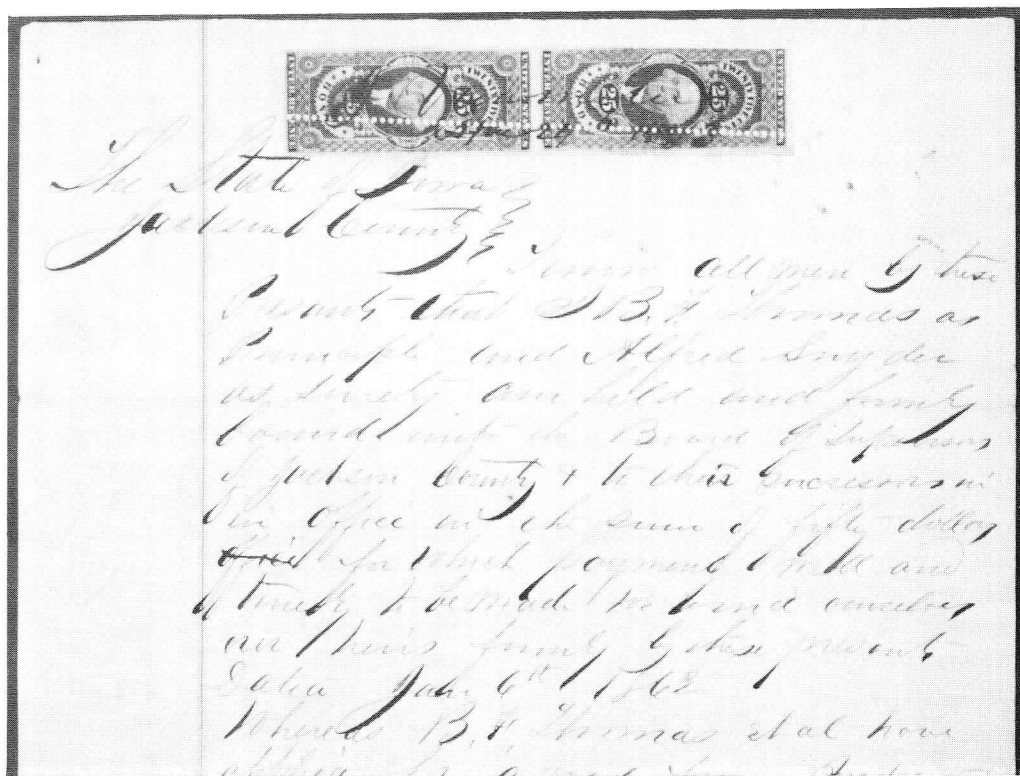 The State of Iowa
Jackson County
Know all men by these
Presents that I B. F. Thomas as
Principle and Alfred Snyder
as Surety am held and firmly
bound unto the Board of Supervisors
of Jackson County & to their successors in
in office in the sum of fifty dollars
for which payment well and
truly to be made we bind ourselves
our heirs firmly by these presents
Dated Jan 6th 1863
Whereas B. F. Thomas et al have